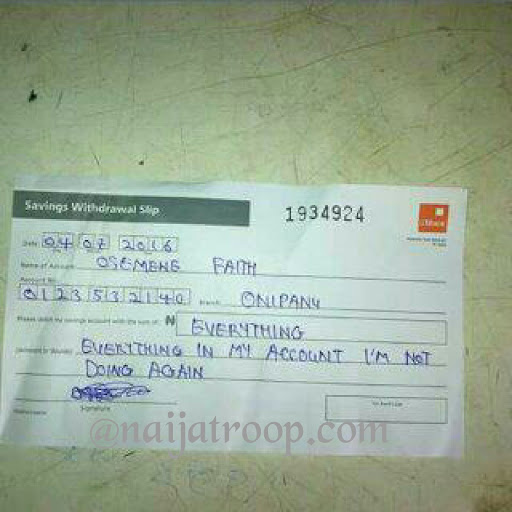 Savings Withdrawal Slip
1934924
GTBank
Date 04 07 2016
Name of Account OSEMENE FAITH
Account No
0123532140 Branch ONIPANU
Please debit my savings account with the sum of: N EVERYTHING
(Amount in Words) EVERYTHING IN MY ACCOUNT I'M NOT
DOING AGAIN
Signature
@naijatroop.com